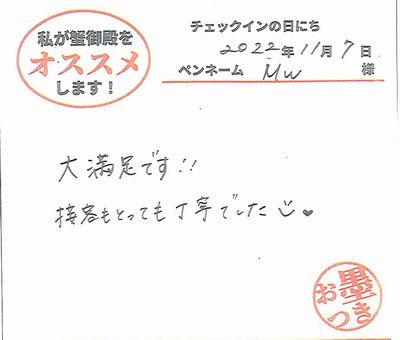 私が蟹御殿を
オススメ
します！
チェックインの日にち
2022年11月7日
ペンネーム Mw 様
大満足です!!
接客もとっても丁寧でした
お墨つき